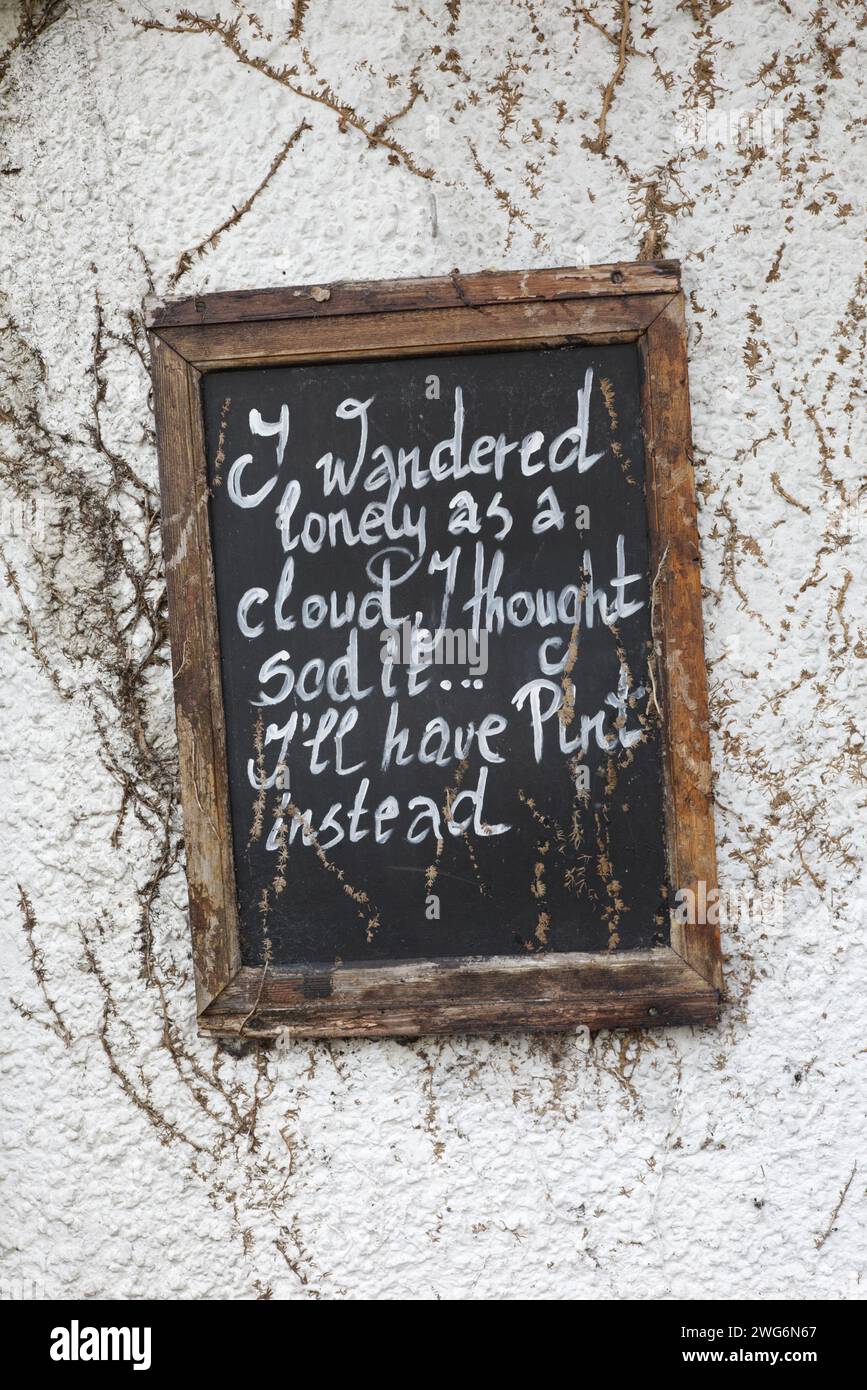 I Wandered
lonely as a
cloud, I thought
sod it...
I'll have a Pint
instead
alamy
Image ID: 2WG6N67
www.alamy.com